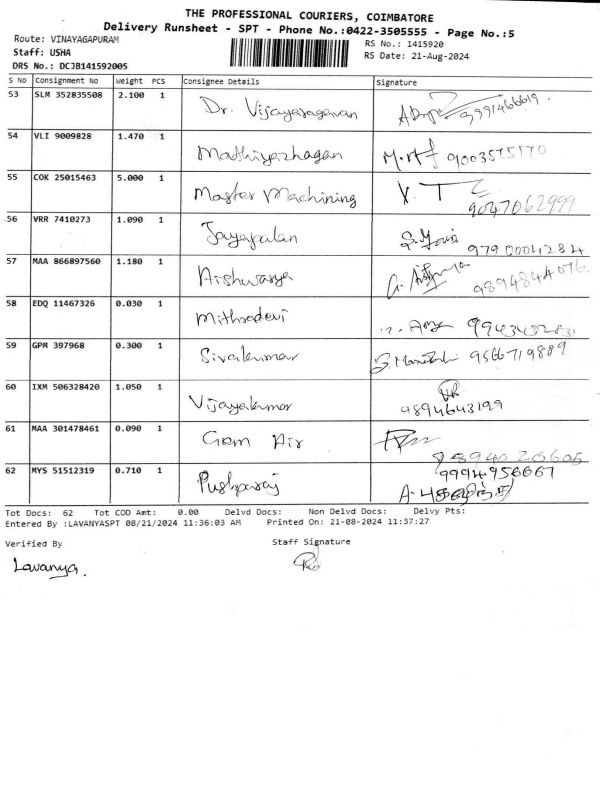 THE PROFESSIONAL COURIERS, COIMBATORE
Delivery Runsheet - SPT - Phone No.:0422-3505555 - Page No.:5
Route: VINAYAGAPURAM
RS No.: 1415920
Staff: USHA
RS Date: 21-Aug-2024
DRS No.: DCJB141592005
S No Consignment No Weight PCS Consignee Details Signature
53 SLM 352835508 2.100 1 Dr. Vijayaragavan
54 VLI 9009828 1.470 1 Madhiyazhagan 9003575170
55 COK 25015463 5.000 1 Master Machining 9047062999
56 VRR 7410273 1.090 1 Jayapalan 9790004284
57 MAA 866897560 1.180 1 Aishwarya 9894844076.
58 EDQ 11467326 0.030 1 Mithradevi
59 GPM 397968 0.300 1 Sivakumar 9566719889
60 IXM 506328420 1.050 1 Vijayakumar 9894643199
61 MAA 301478461 0.090 1 Gem Air
62 MYS 51512319 0.710 1 Pushparaj 9994956667
Tot Docs: 62 Tot COD Amt: 0.00 Delvd Docs: Non Delvd Docs: Delvy Pts:
Entered By :LAVANYASPT 08/21/2024 11:36:03 AM Printed On: 21-08-2024 11:37:27
Verified By Staff Signature
Lavanya.